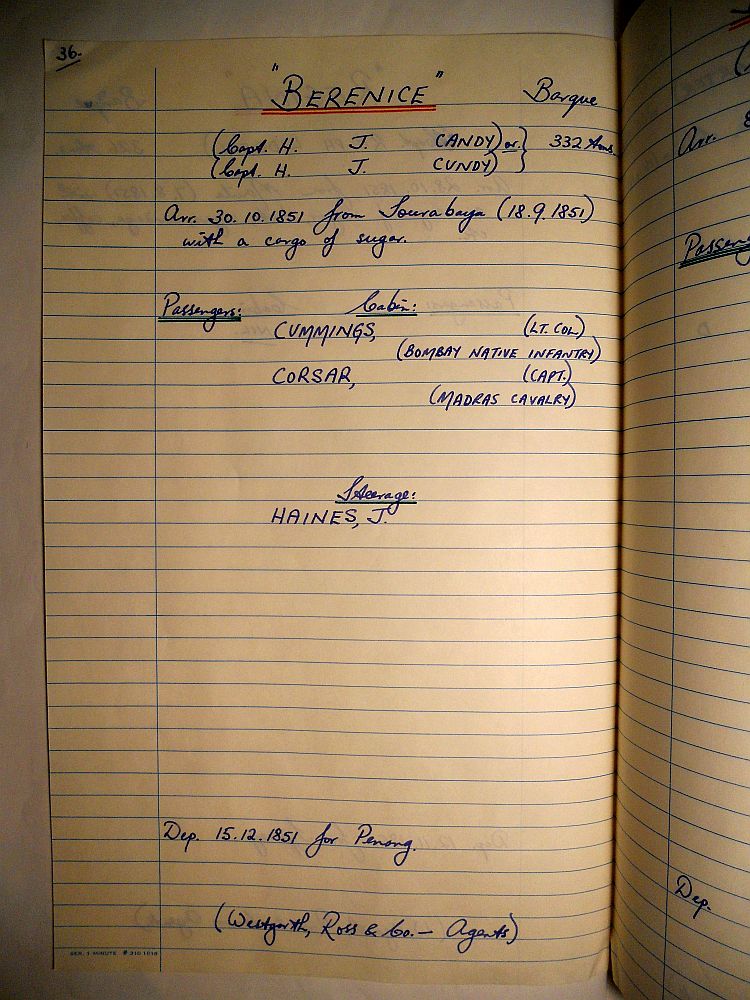 36.
"BERENICE" Barque
(Capt. H. J. CANDY) or } 332 tons
(Capt. H. J. CUNDY) }
Arr. 30.10.1851 from Sourabaya (18.9.1851)
with a cargo of sugar.
Passengers: Cabin:
CUMMINGS, (LT. COL)
(BOMBAY NATIVE INFANTRY)
CORSAR, (CAPT.)
(MADRAS CAVALRY)
Steerage:
HAINES, J.
Dep. 15.12.1851 for Penang.
(Westgarth, Ross & Co. — Agents)
GER. 1 MINUTE # 310 1018
Arr. 8
Passeng
Dep.